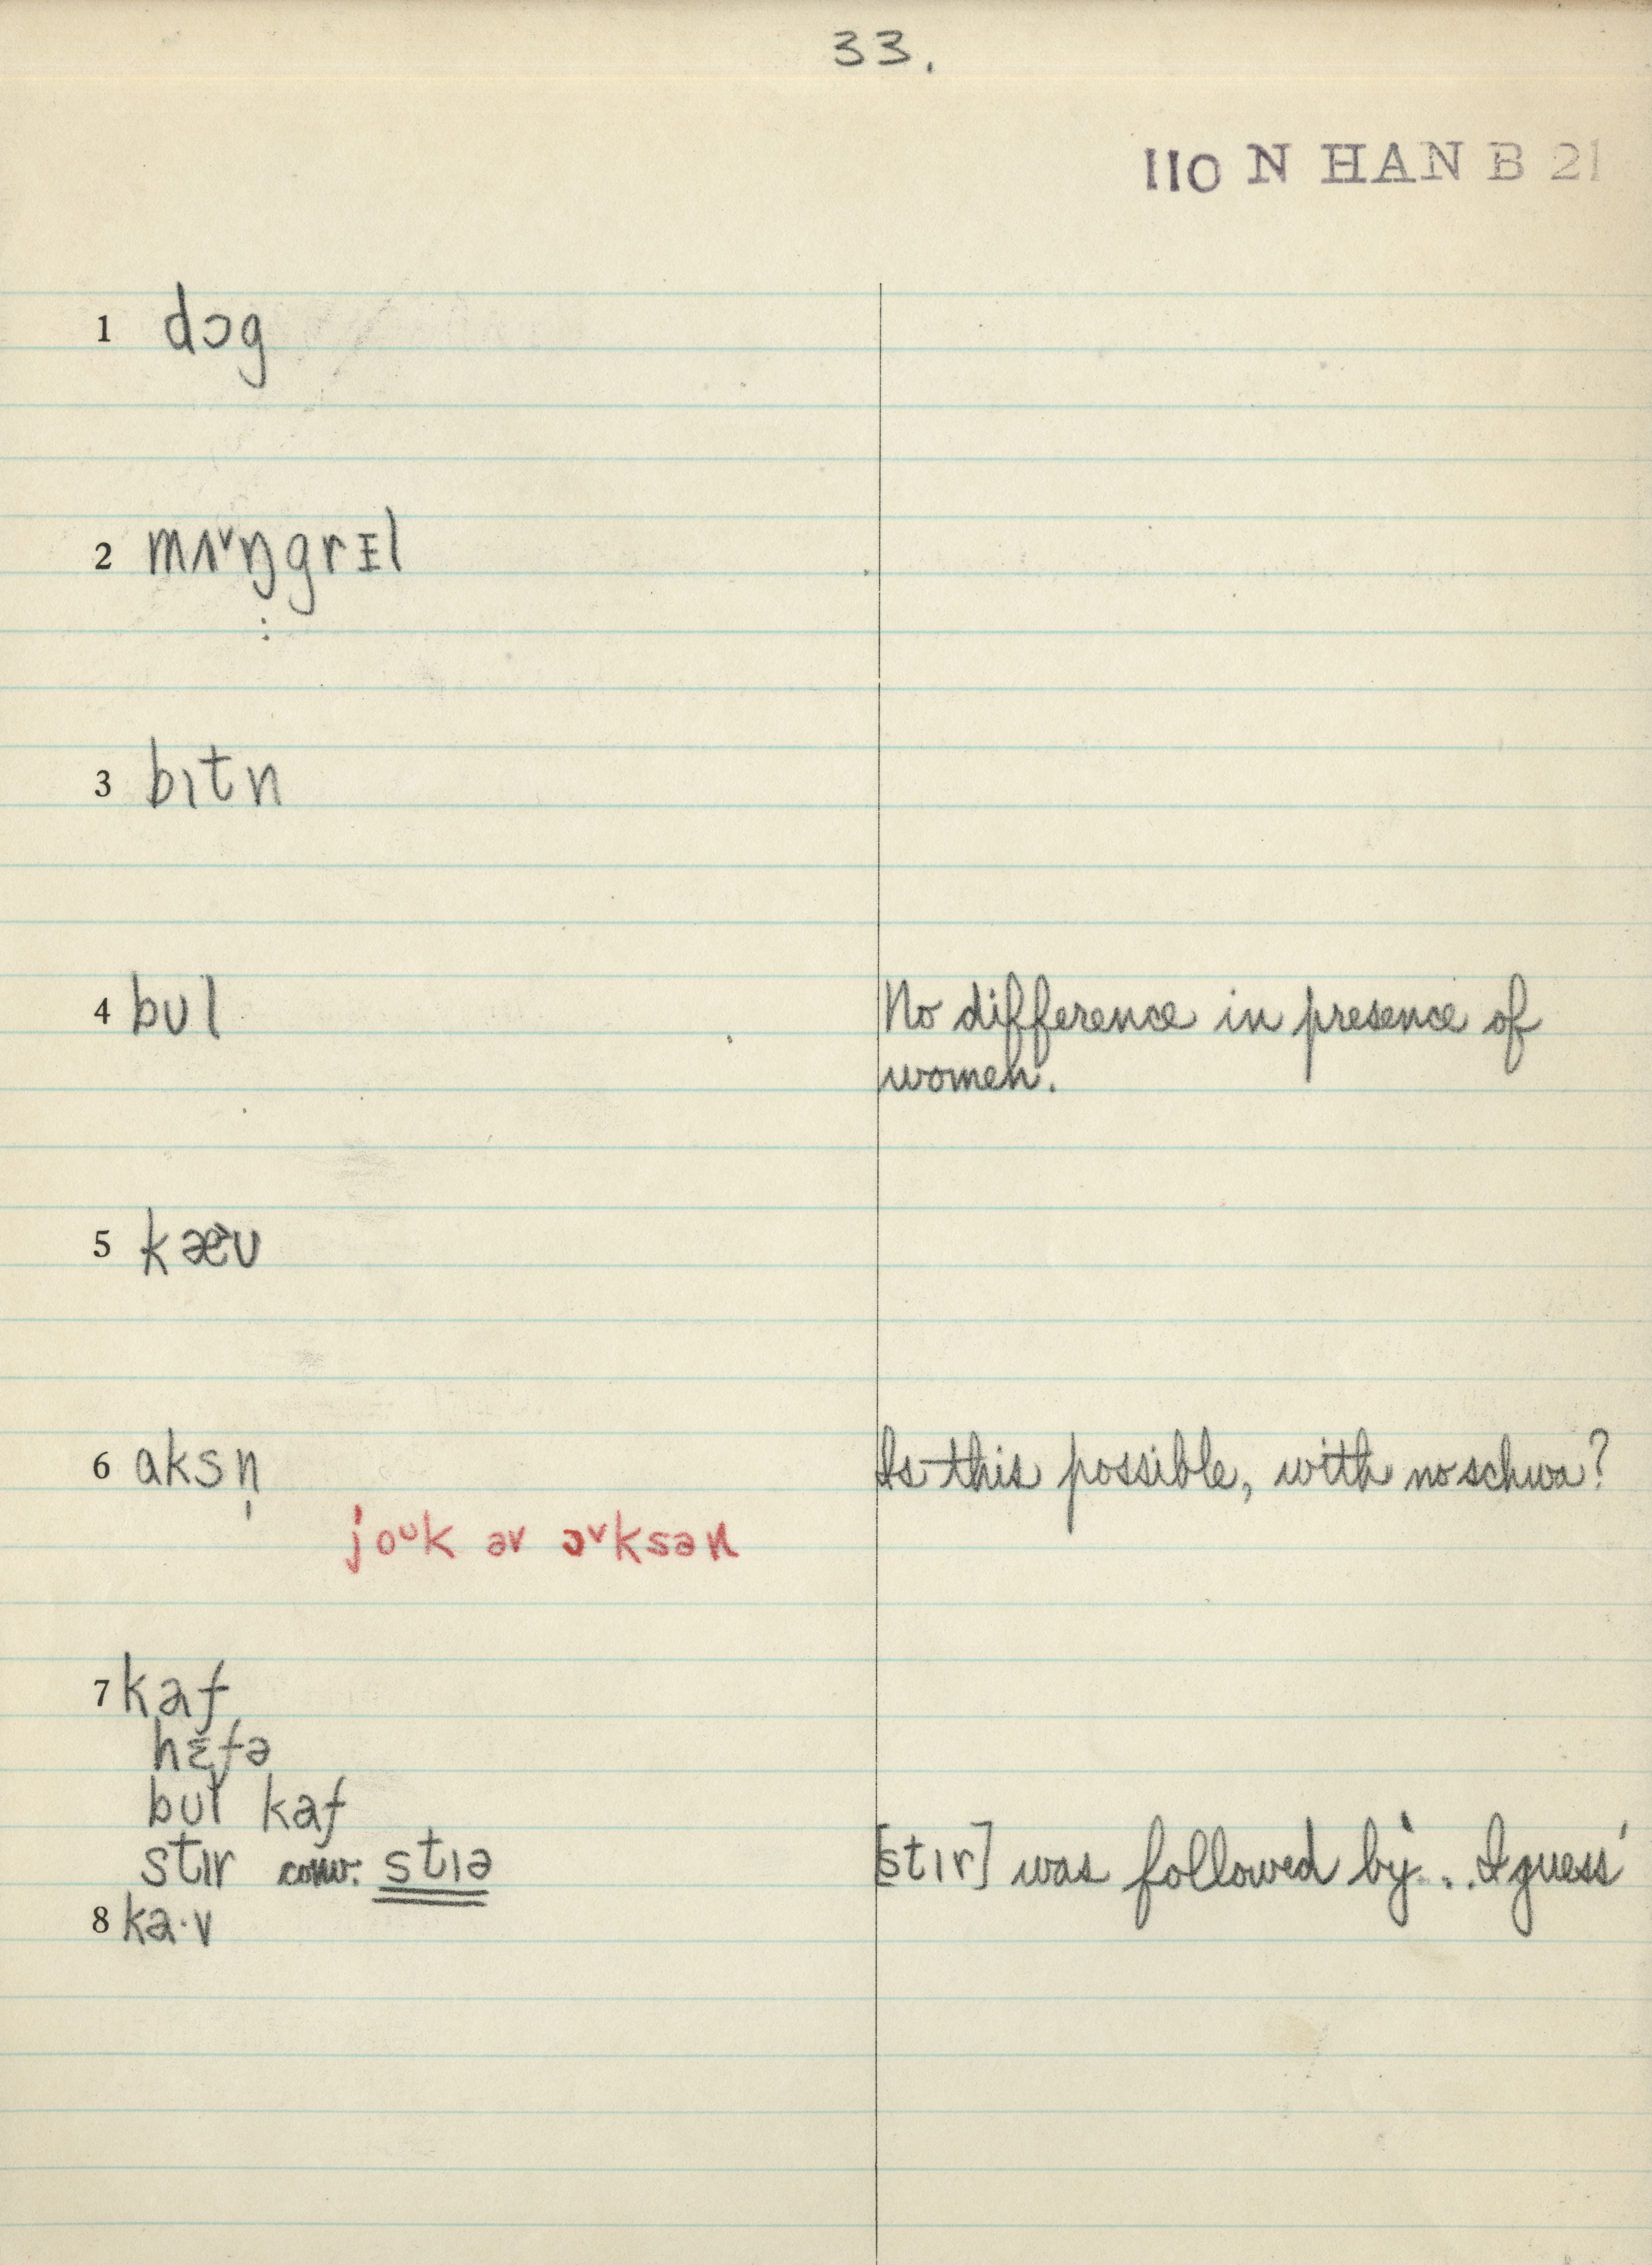 33.
110 N HAN B 21
1 dɔg
2 mʌ˅ŋgrᵻl
:
3 bɪtn
4 bʊl No difference in presence of
women.
5 kæ˃ʊ
6 aksn̩ Is this possible, with no schwa?
joᴜk əv ɔ˅ksən
7 kaf
hɛfə
bʊl kaf
stɪr conv. stɪə [stɪr] was followed by '... I guess'
8 ka·v